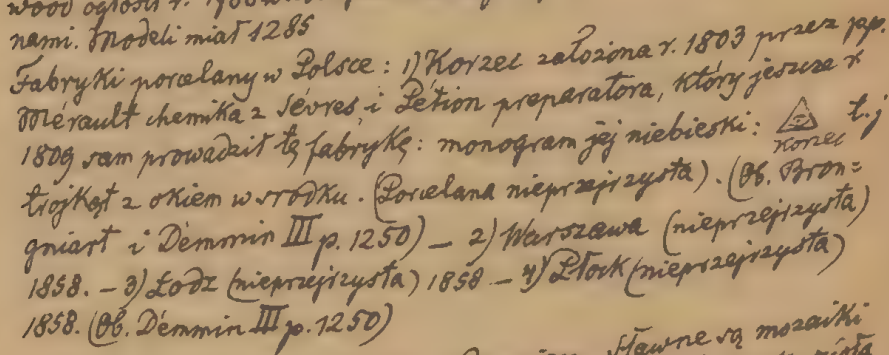 nami. Modeli miał 1285
Fabryki porcelany w Polsce: 1) Korzec założona r. 1803 przez pp.
Mérault chemika z Sévres i Pétion preparatora, który jeszcze r
1809 sam prowadził tę fabrykę: monogram jej niebieski: Korzec t.j
trojkąt z okiem w srodku. (Porcelana nieprzejrzysta). (Ob. Bron=
gniart i Démmin III p. 1250) – 2) Warszawa (nieprzejrzysta)
1858. – 3) Łodz (nieprzejrzysta) 1858 – 4) Płock (nieprzejrzysta)
1858. (Ob. Démmin III p. 1250)
sławne są mozaiki